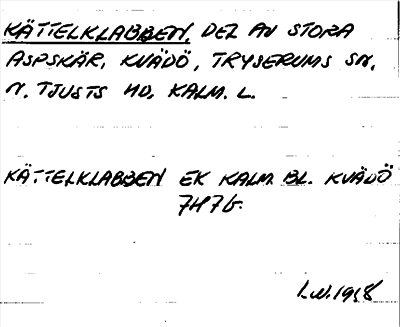 KÄTTELKLABBEN, DEL AV STORA
ASPSKÄR, KVÄDÖ, TRYSERUMS SN,
N. TJUSTS HD, KALM. L.
KÄTTELKLABBEN EK KALM. BL. KVÄDÖ
7H7b.